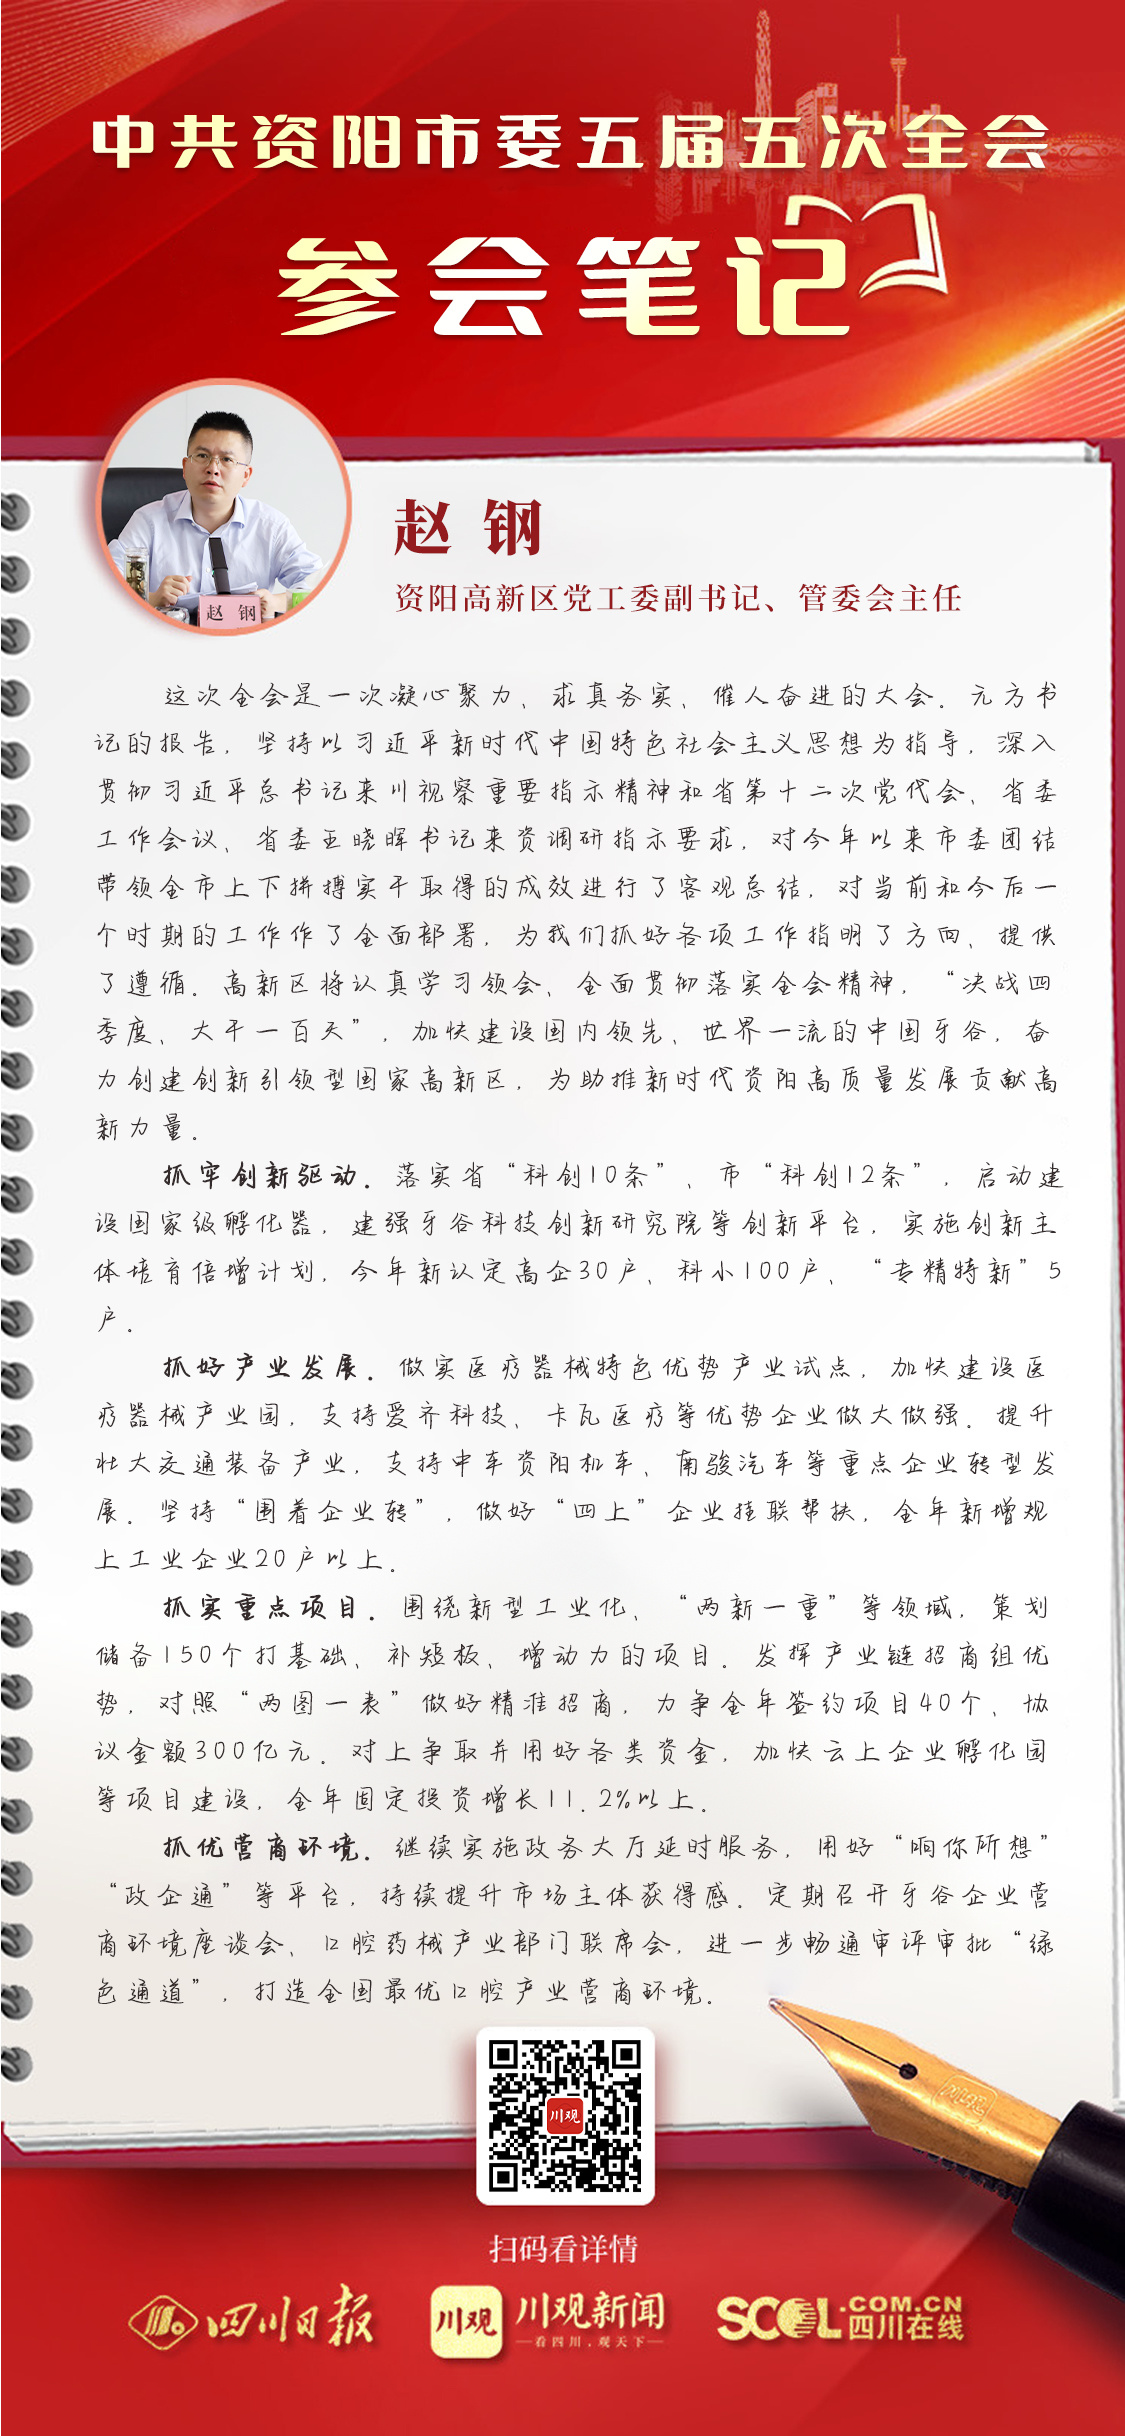 中共资阳市委五届五次全会
参会笔记
赵钢
资阳高新区党工委副书记、管委会主任
赵 钢
这次全会是一次凝心聚力、求真务实、催人奋进的大会。元方书
记的报告，坚持以习近平新时代中国特色社会主义思想为指导，深入
贯彻习近平总书记来川视察重要指示精神和省第十二次党代会、省委
工作会议、省委王晓晖书记来资调研指示要求，对今年以来市委团结
带领全市上下拼搏实干取得的成效进行了客观总结，对当前和今后一
个时期的工作作了全面部署，为我们抓好各项工作指明了方向、提供
了遵循。高新区将认真学习领会、全面贯彻落实全会精神，“决战四
季度、大干一百天”，加快建设国内领先、世界一流的中国牙谷，奋
力创建创新引领型国家高新区，为助推新时代资阳高质量发展贡献高
新力量。
抓牢创新驱动。落实省“科创10条”、市“科创12条”，启动建
设国家级孵化器，建强牙谷科技创新研究院等创新平台，实施创新主
体培育倍增计划，今年新认定高企30户、科小100户、“专精特新”5
户。
抓好产业发展。做实医疗器械特色优势产业试点，加快建设医
疗器械产业园，支持爱齐科技、卡瓦医疗等优势企业做大做强。提升
壮大交通装备产业，支持中车资阳机车、南骏汽车等重点企业转型发
展。坚持“围着企业转”，做好“四上”企业挂联帮扶，全年新增规
上工业企业20户以上。
抓实重点项目。围绕新型工业化、“两新一重”等领域，策划
储备150个打基础、补短板、增动力的项目。发挥产业链招商组优
势，对照“两图一表”做好精准招商，力争全年签约项目40个、协
议金额300亿元。对上争取并用好各类资金，加快云上企业孵化园
等项目建设，全年固定投资增长11.2%以上。
抓优营商环境。继续实施政务大厅延时服务，用好“晌你所想”
“政企通”等平台，持续提升市场主体获得感。定期召开牙谷企业营
商环境座谈会、口腔药械产业部门联席会，进一步畅通审评审批“绿
色通道”，打造全国最优口腔产业营商环境。
川观
扫码看详情
四川日报
川观
川观新闻
看四川，观天下
SCOL.COM.CN
四川在线